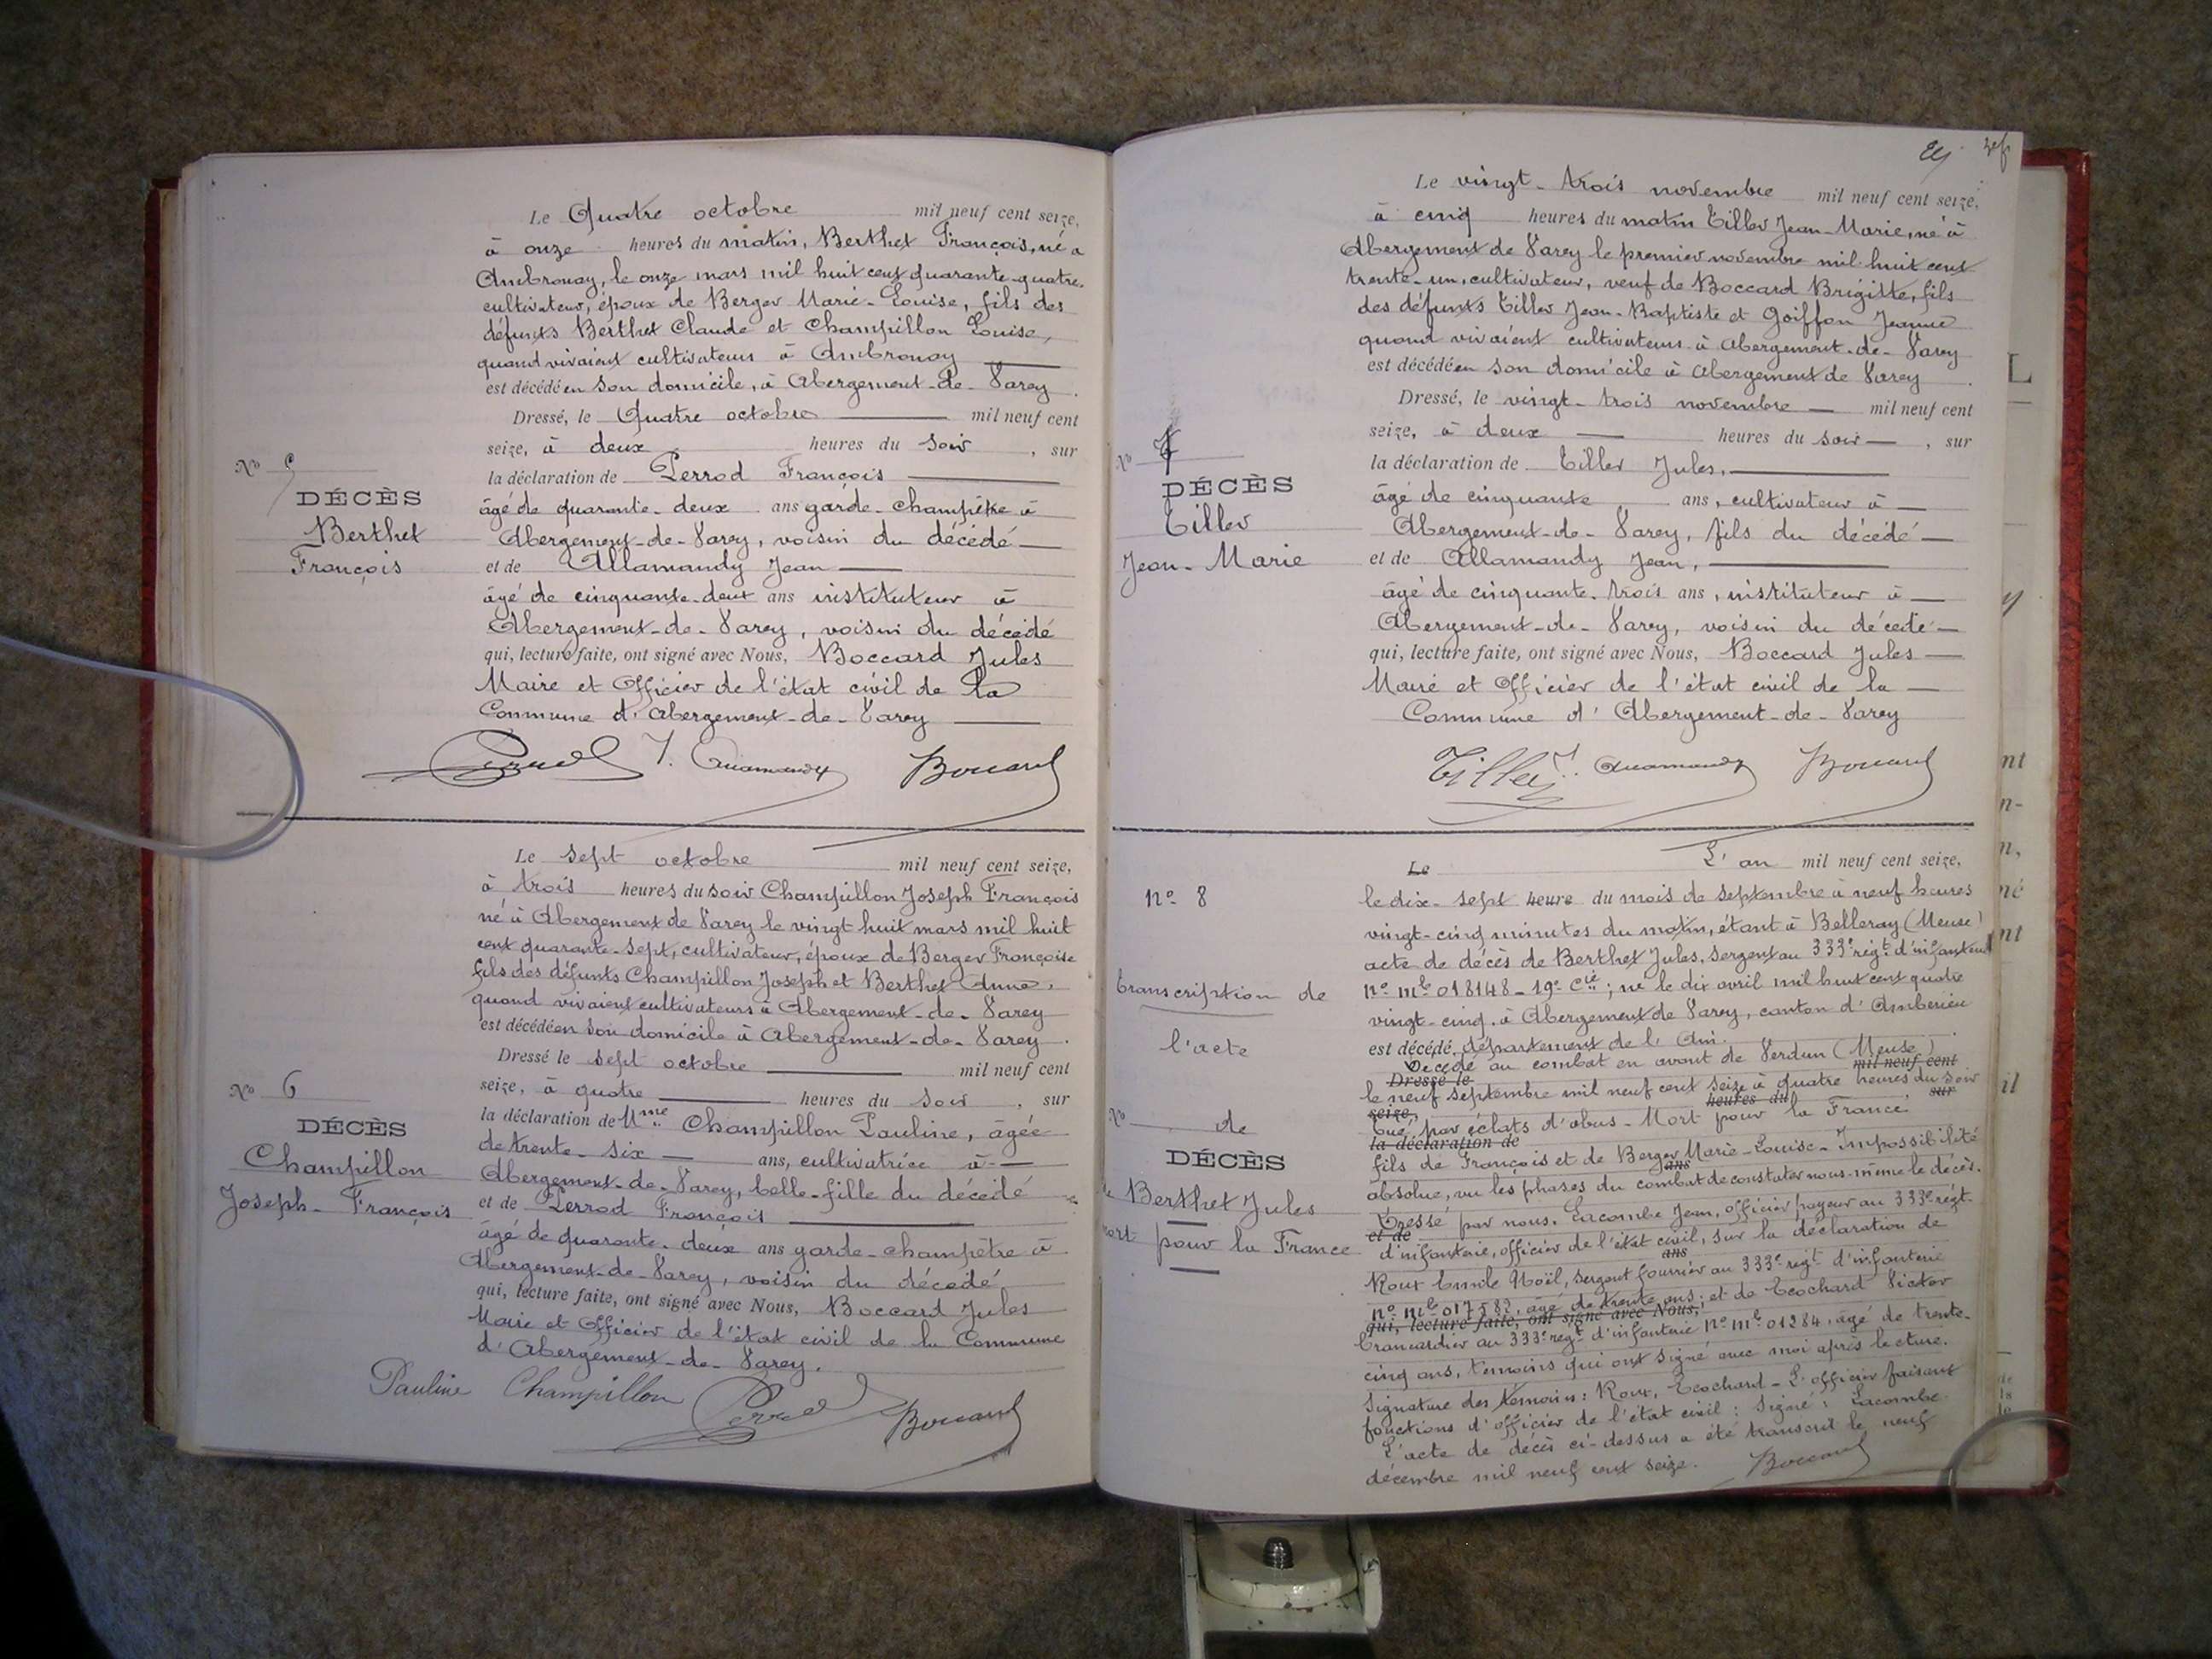 Le Quatre octobre mil neuf cent seize,
à onze heures du matin, Berthet François, né à
Ambronay, le onze mars mil huit cent quarante-quatre,
cultivateur, époux de Berger Marie-Louise, fils des
défunts Berthet Claude et Champillon Louise,
quand vivaient cultivateurs à Ambronay
est décédé en son domicile, à Abergement-de-Varey.
Dressé, le Quatre octobre mil neuf cent
seize, à deux heures du soir, sur
la déclaration de Perrod François
âgé de quarante-deux ans garde-champêtre à
Abergement-de-Varey, voisin du décédé
et de Allamandy Jean
âgé de cinquante-deux ans instituteur à
Abergement-de-Varey, voisin du décédé
qui, lecture faite, ont signé avec Nous, Boccard Jules
Maire et Officier de l'état civil de la
Commune d'Abergement-de-Varey
Perrod J. Allamandy Boccard
No 5
DÉCÈS
Berthet
François
Le sept octobre mil neuf cent seize,
à trois heures du soir Champillon Joseph François
né à Abergement de Varey le vingt huit mars mil huit
cent quarante-sept, cultivateur, époux de Berger Françoise
fils des défunts Champillon Joseph et Berthet Anne,
quand vivaient cultivateurs à Abergement-de-Varey
est décédé en son domicile à Abergement-de-Varey.
Dressé le sept octobre mil neuf cent
seize, à quatre heures du soir, sur
la déclaration de Mme Champillon Pauline, âgée
de trente-six ans, cultivatrice à
Abergement-de-Varey, belle-fille du décédé
et de Perrod François
âgé de quarante-deux ans garde-champêtre à
Abergement-de-Varey, voisin du décédé
qui, lecture faite, ont signé avec Nous, Boccard Jules
Maire et Officier de l'état civil de la Commune
d'Abergement-de-Varey.
Pauline Champillon Perrod Boccard
No 6
DÉCÈS
Champillon
Joseph-François
Le vingt-trois novembre mil neuf cent seize,
à cinq heures du matin Tiller Jean-Marie, né à
Abergement de Varey le premier novembre mil huit cent
trente-un, cultivateur, veuf de Boccard Brigitte, fils
des défunts Tiller Jean-Baptiste et Goiffon Jeanne
quand vivaient cultivateurs à Abergement-de-Varey
est décédé en son domicile à Abergement de Varey.
Dressé, le vingt-trois novembre mil neuf cent
seize, à deux heures du soir, sur
la déclaration de Tiller Jules,
âgé de cinquante ans, cultivateur à
Abergement-de-Varey, fils du décédé
et de Allamandy Jean,
âgé de cinquante-trois ans, instituteur à
Abergement-de-Varey, voisin du décédé
qui, lecture faite, ont signé avec Nous, Boccard Jules
Maire et Officier de l'état civil de la
Commune d'Abergement-de-Varey
Tiller J. Allamandy Boccard
No 7
DÉCÈS
Tiller
Jean-Marie
Le L'an mil neuf cent seize,
le dix-sept heure du mois de septembre à neuf heures
vingt-cinq minutes du matin, étant à Belleray (Meuse)
acte de décès de Berthet Jules, Sergent au 333e régt d'infanterie
no mle 018148-19e Cie; né le dix avril mil huit cent quatre
vingt-cinq, à Abergement de Varey, canton d'Ambérieu
est décédé, département de l'Ain.
Décédé au combat en avant de Verdun (Meuse)
Dressé le mil neuf cent
le neuf septembre mil neuf cent seize à quatre heures du soir
seize, heures du sur
tué par éclats d'obus-Mort pour la France
la déclaration de
fils de François et de Berger Marie-Louise-Impossibilité
ans
absolue, vu les phases du combat de constater nous-même le décès.
Dressé par nous, Lacombe Jean, officier payeur au 333e régt.
et de
d'infanterie, officier de l'état civil, sur la déclaration de
ans
Roux Emile Noël, sergent fourrier au 333e régt d'infanterie
no mle 017582, âgé de trente ans; et de Teochard Victor
qui, lecture faite, ont signé avec Nous,
brancardier au 333e régt d'infanterie no mle 01284, âgé de trente-
cinq ans, témoins qui ont signé avec moi après lecture.
Signature des témoins: Roux, Teochard-L'officier faisant
fonctions d'officier de l'état civil: signé: Lacombe
L'acte de décès ci-dessus a été transcrit le neuf
décembre mil neuf cent seize. Boccard
no 8
transcription de
l'acte
No de
DÉCÈS
de Berthet Jules
mort pour la France
L
nt
n-
n,
né
nt
il